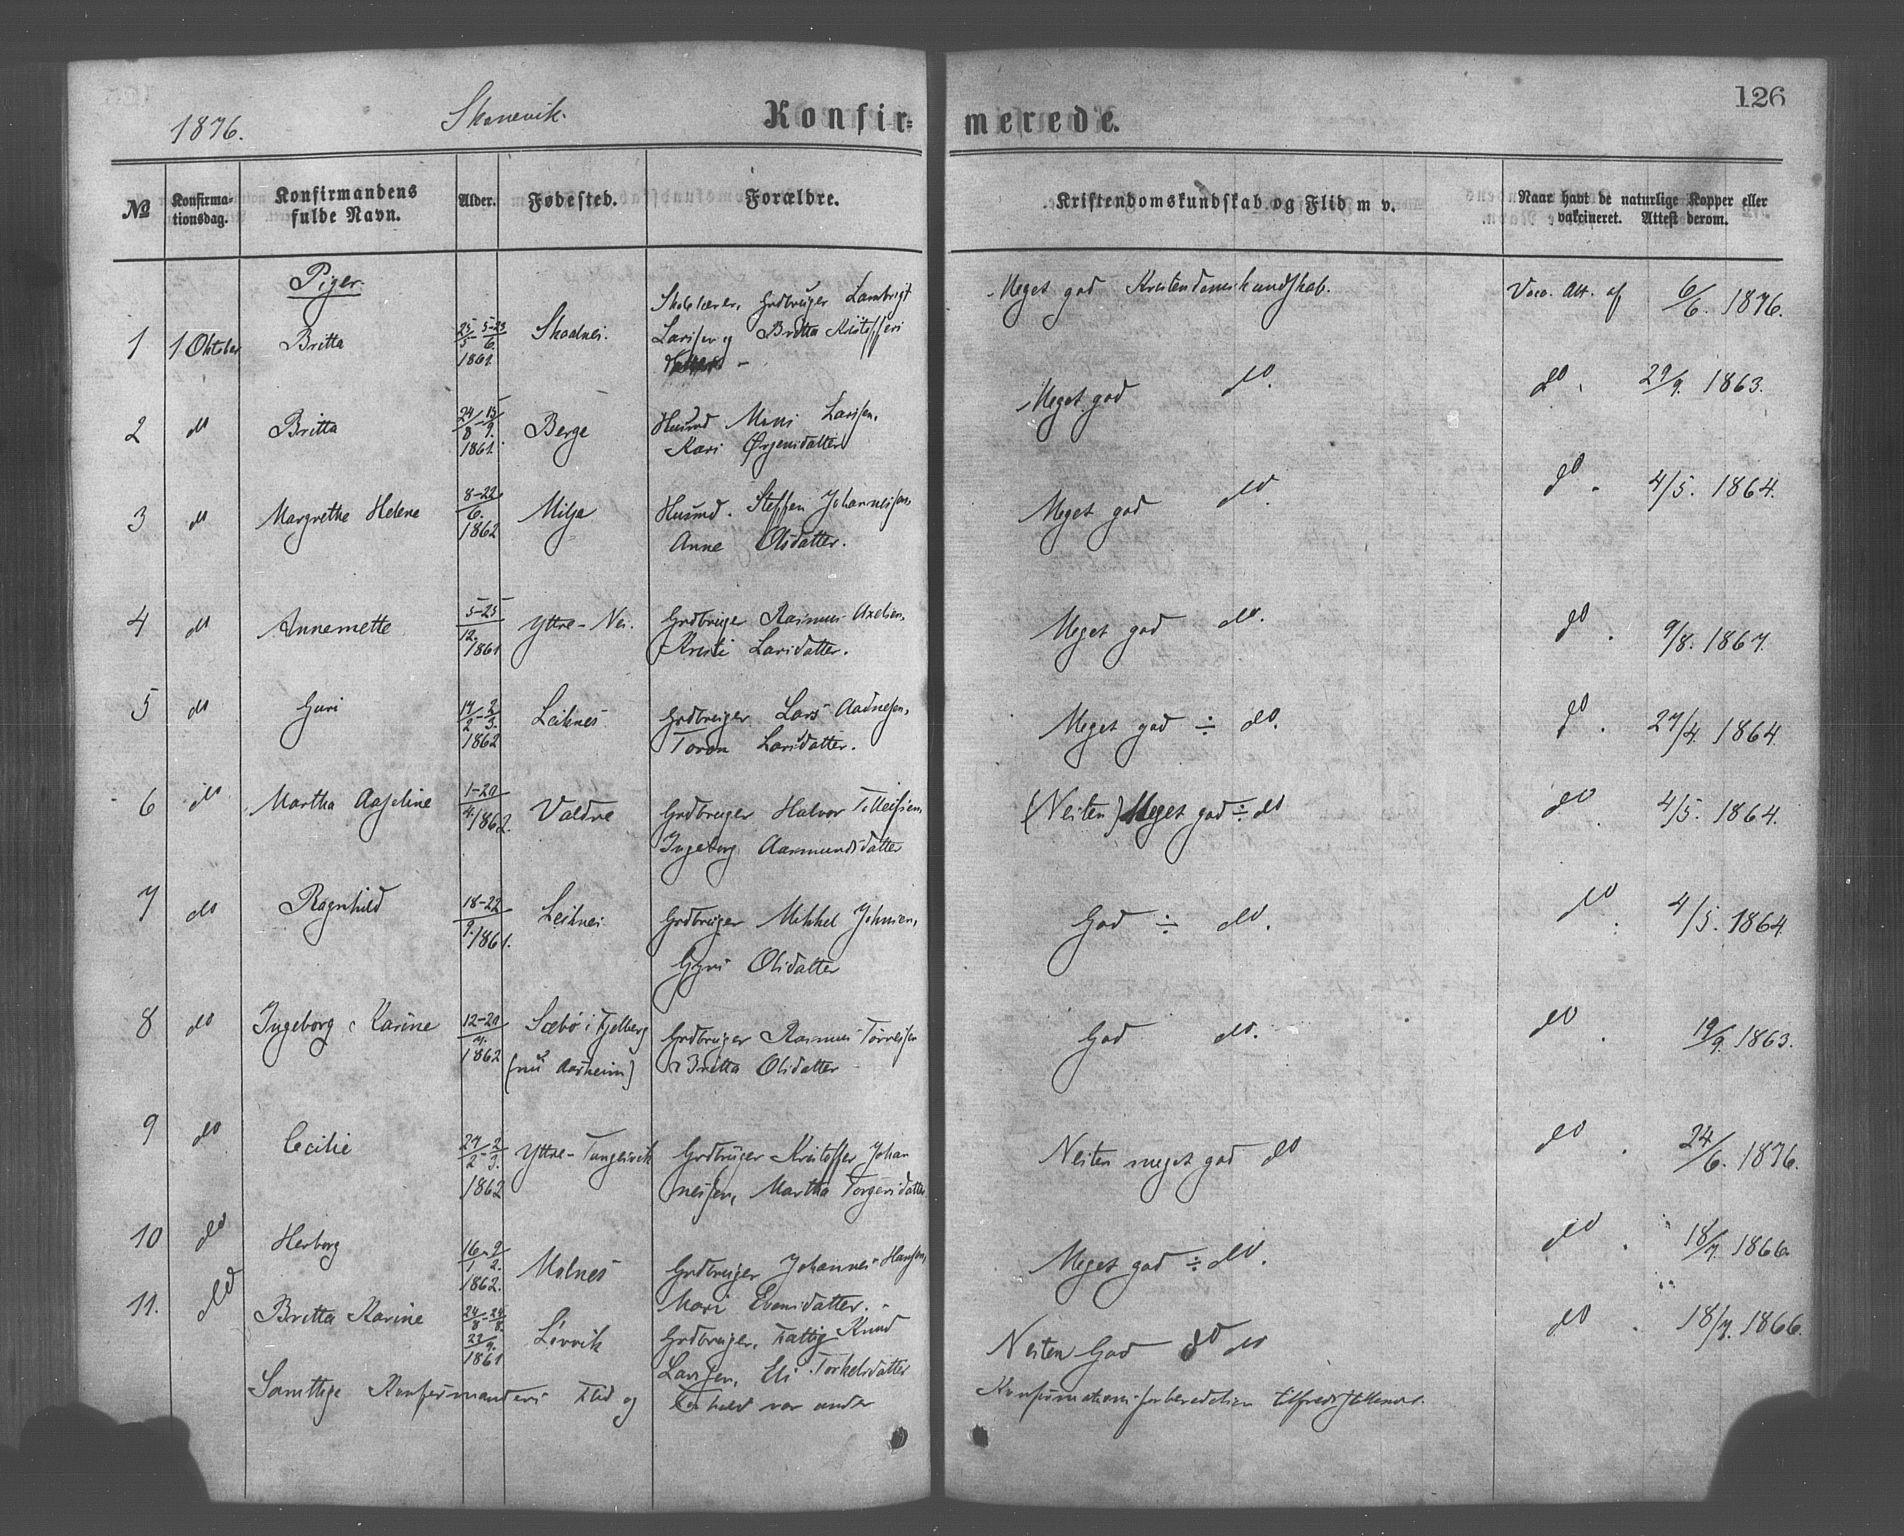 126
1876.
Skonevik.
Konfir=
merede.
№
Konfirma-
tionsdag.
Konfirmandens
fulde Navn.
Alder.
Fødested.
Forældre.
Kristendomskundskab og Flid m v.
Naar havt de naturlige Kopper eller
vakcineret. Attest derom.
Piger.
1 1 Oktober Britta 25/5-23/6. 1861. Skolelærer, Grdbruger Lambrigt
Larsen og Britta Kristoffers
Meget god Kristendomskundskab. Vacc. Att. af 6/6. 1876.
2 do Britta 24/8-15/9. 1861. Berge Husmd Mons Larssen,
Kari Ørjensdatter
Meget god do. do. 29/9. 1863.
3 do Margrethe Helene 8-22/6. 1862 Milje Husmd. Steffen Johannessen,
Anne Olsdatter.
Meget god do. do. 4/5. 1864.
4 do Annemette 5-25/12. 1861 Yttre-Nes. Grdbruger Rasmus Axelsen,
Kristi Larsdatter.
Meget god do. do. 9/8. 1867.
5 do Guri 17/2-2/3. 1862 Leiknes Grdbruger Lars Aadnesen,
Toron Larsdatter.
Meget god ÷ do. do. 27/4. 1864.
6 do Martha Aaseline 1-20/4. 1862. Valdre Grdbruger Halvor Tolleifsen,
Ingeborg Aasmundsdatter
(Neiten) Meget god ÷ do do 4/5. 1864.
7 do Ragnhild 18-22/9. 1861. Leiknes Grdbruger Mikkel Johnsen,
Gyri Olsdatter
God ÷ do. do. 4/5. 1864
8 do Ingeborg Karine 12-20/4. 1862 Sæbø i Fjelberg
(nu Aasheim)
Grdbruger Rasmus Torressen
Britta Olsdatter
God do. do. 19/9. 1863.
9 do Cecilie 27/2-2/3. 1862 Yttre-Tungesvik Grdbruger Kristoffer Johan
nessen, Martha Torgersdatter
Neiten meget god do do. 24/6. 1876.
10 do Herborg 16/1-9/2. 1862. Molnes Grdbruger Johannes Hansen,
Mari Evensdatter.
Meget god ÷ do. do. 18/7. 1866.
11. do Britta Karine 24/8-24/8. 23/9. 1861 Løvvik Grdbruger, Fattig Knud
Larssen, Eli Torkelsdatter
Neiten God do do do. 18/7. 1866.
Samtlige Konfirmanders Flid og Forhold var under
Konfirmationsforberedelsen tilfredsstillende.